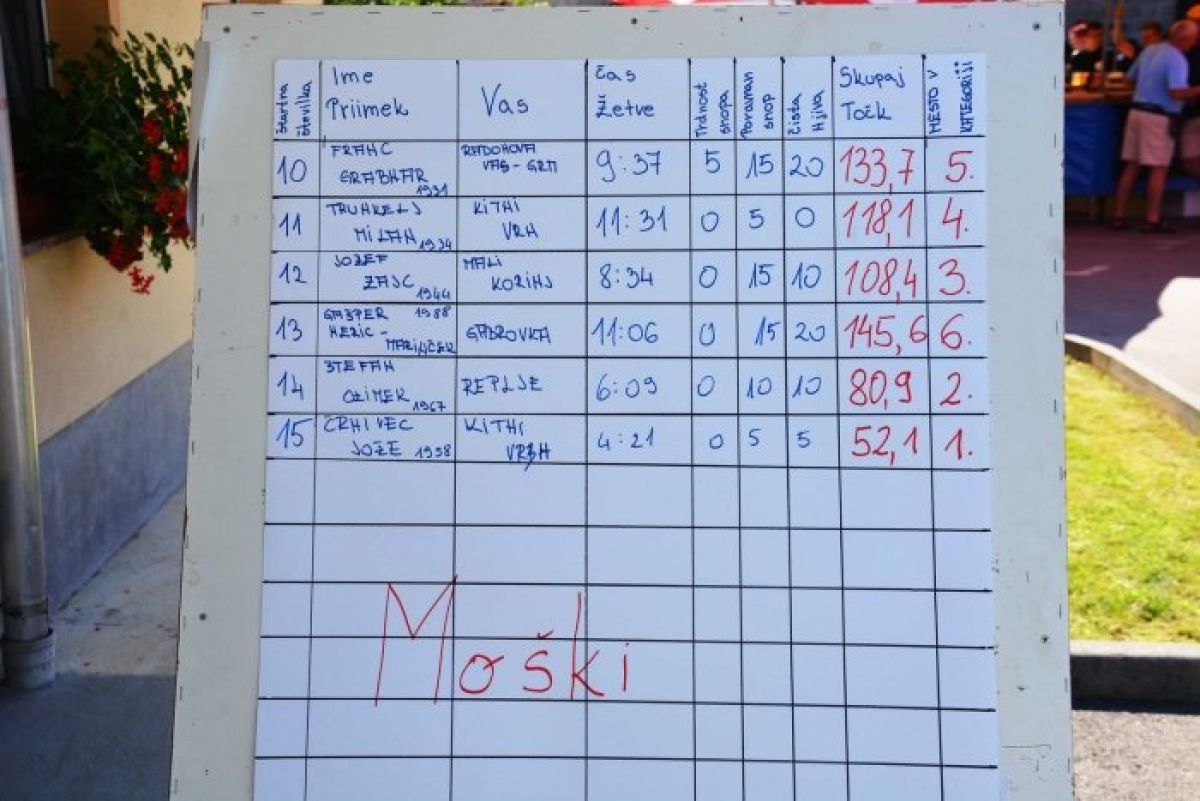 štartna številka Ime Priimek Vas čas žetve Trdnost snopa Poravnan snop čista Njiva Skupaj Točk MESTO V KATEGORIJI
10 FRANC GRABNAR 1931 RADOHOVA VAS-GRM 9:37 5 15 20 133,7 5.
11 TRUNKELJ MILAN 1934 KITNI VRH 11:31 0 5 0 118,1 4.
12 JOŽEF ZAJC 1944 MALI KORINJ 8:34 0 15 10 108,4 3.
13 GAŠPER 1988 11:06 0 15 20 145,6 6.
14 ŠTEFAN OZIMEK 1967 REPLJE 6:09 0 10 10 80,9 2.
15 ČRNIVEC JOŽE 1958 KITNI VRH 4:21 0 5 5 52,1 1.
Moški